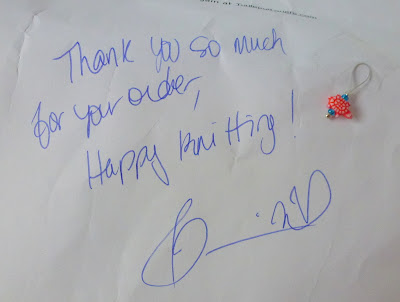 Thank you so much
for your order,
Happy Knitting!